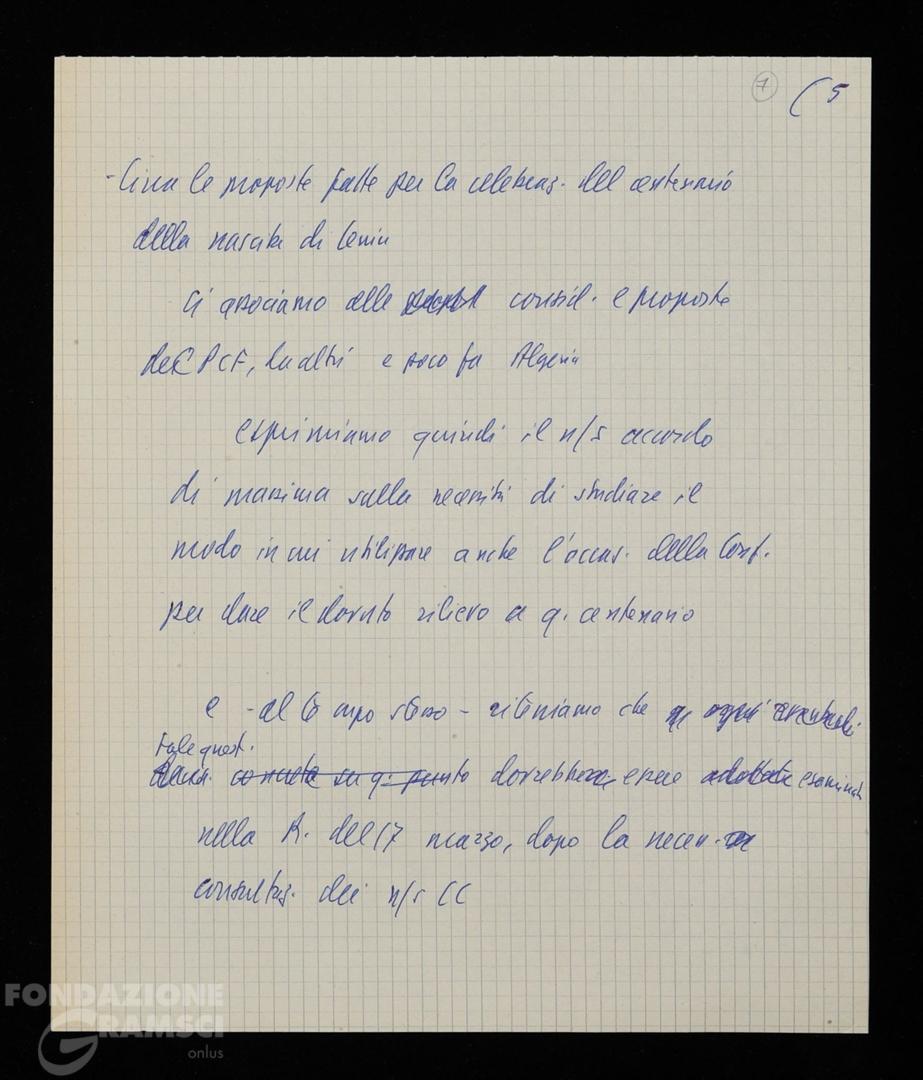 7 ( 5
- Circa le proposte fatte per la celebraz. del centenario
della nascita di Lenin
Ci associamo alle consid. e proposte
del PCF, da altri e poco fa Algeria
esprimiamo quindi il n/s accordo
di massima sulla necessità di studiare il
modo in cui utilizzare anche l'occas. della Conf.
per dare il dovuto rilievo a q. centenario
e - al tempo stesso - riteniamo che ogni eventuali
tale quest.
concreta su q. punto dovrebbe essere adottata esaminata
nella R. del 17 marzo, dopo la necess.
consultaz. dei n/s CC
FONDAZIONE
GRAMSCI
onlus